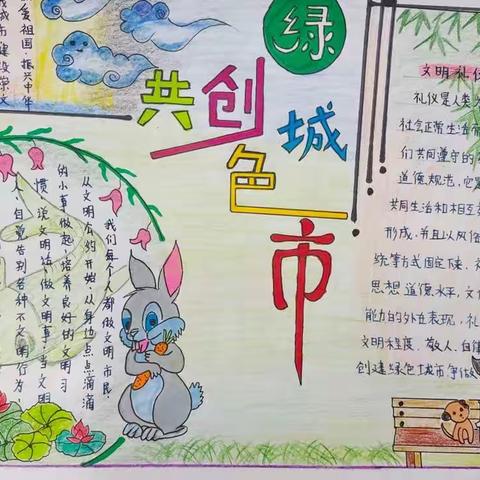 共创绿色城市
爱祖国,振兴中华
城市建设
我们每个人都做文明市民,
从文明公约开始,从身边点点滴滴
的小事做起,培养良好的文明习
惯,说文明话,做文明事,当文明
人,自觉告别各种不文明行为,
文明礼仪
礼仪是人类
社会正常生活
们共同遵守的
道德规范,它是
共同生活和相互
形成,并且以风俗
统等方式固定下来,
思想道德水平,文
能力的外在表现,礼
文明程度、敬人、自律
创建绿色城市争做